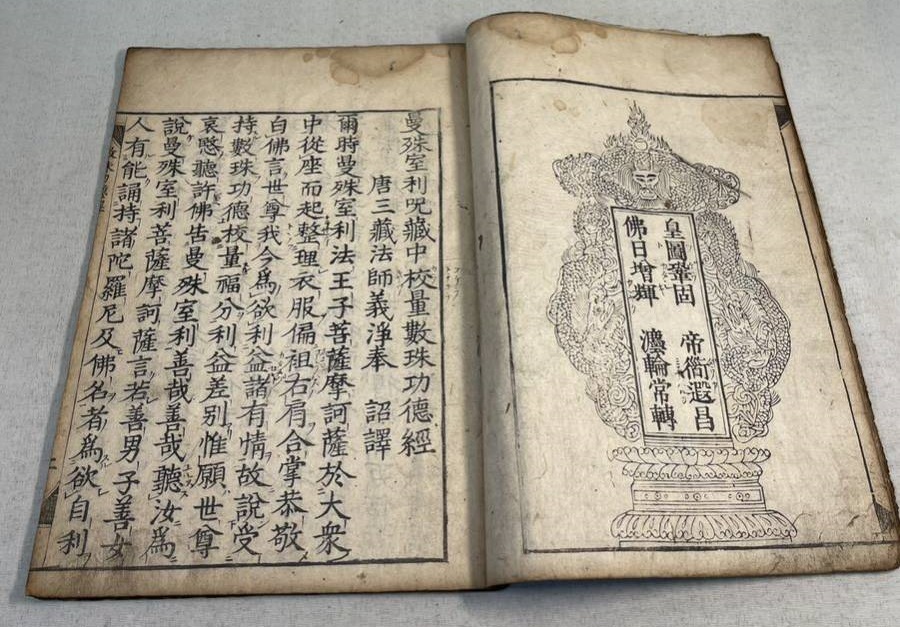 皇圖鞏固　帝衜遐昌
佛日增輝　灋輪常轉
曼殊室利呪藏中校量數珠功德經
唐三藏法師義淨奉　詔譯
爾時曼殊室利法王子菩薩摩訶薩於大衆
中從座而起整理衣服偏袒右肩合掌恭敬
白佛言世尊我今爲欲利益諸有情故說受
持數珠功德校量福分利益差别惟願世尊
哀愍聽許佛告曼殊室利善哉善哉聽汝爲
說曼殊室利菩薩摩訶薩言若善男子善女
人有能誦持諸陀羅尼及佛名者爲欲自利